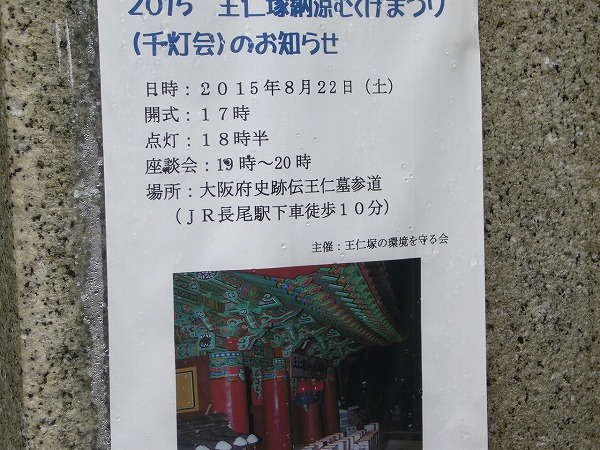 2015　王仁塚納涼むくげまつり
(千灯会)のお知らせ
日時：２０１５年８月２２日（土）
開式：１７時
点灯：１８時半
座談会：19時～20時
場所：大阪府史跡伝王仁墓参道
（ＪＲ長尾駅下車徒歩１０分）
主催：王仁塚の環境を守る会